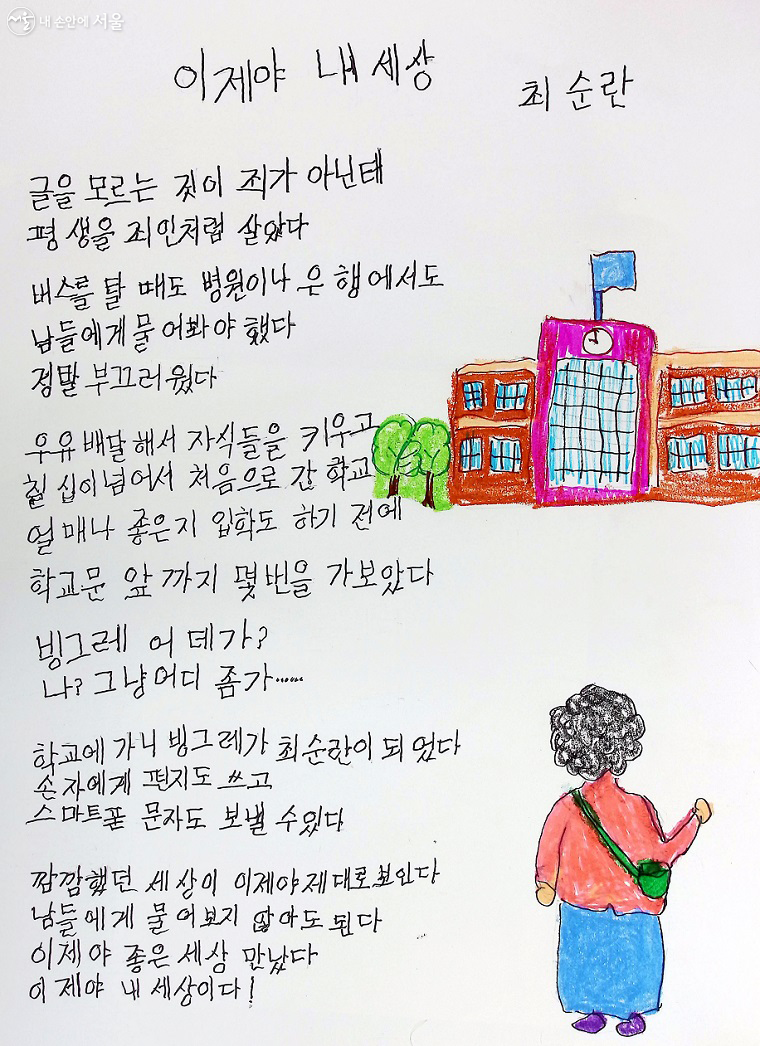 내 손안에 서울
이제야 내 세상
최순란
글을 모르는 것이 죄가 아닌테
평생을 죄인처럼 살았다
버스를 탈 때도 병원이나 은행에서도
남들에게 물어봐야 했다
정말 부끄러웠다
우유 배달해서 자식들을 키우고
칠십이 넘어서 처음으로 간 학교
얼매나 좋은지 입학도 하기 전에
학교문 앞까지 몇번을 가보았다
빙그레 어데가?
나? 그냥 어디 좀 가……
학교에 가니 빙그레가 최순란이 되었다
손자에게 편지도 쓰고
스마트폰 문자도 보낼 수 있다
깜깜했던 세상이 이제야 제대로 보인다
남들에게 물어보지 않아도 된다
이제야 좋은 세상 만났다
이제야 내 세상이다!